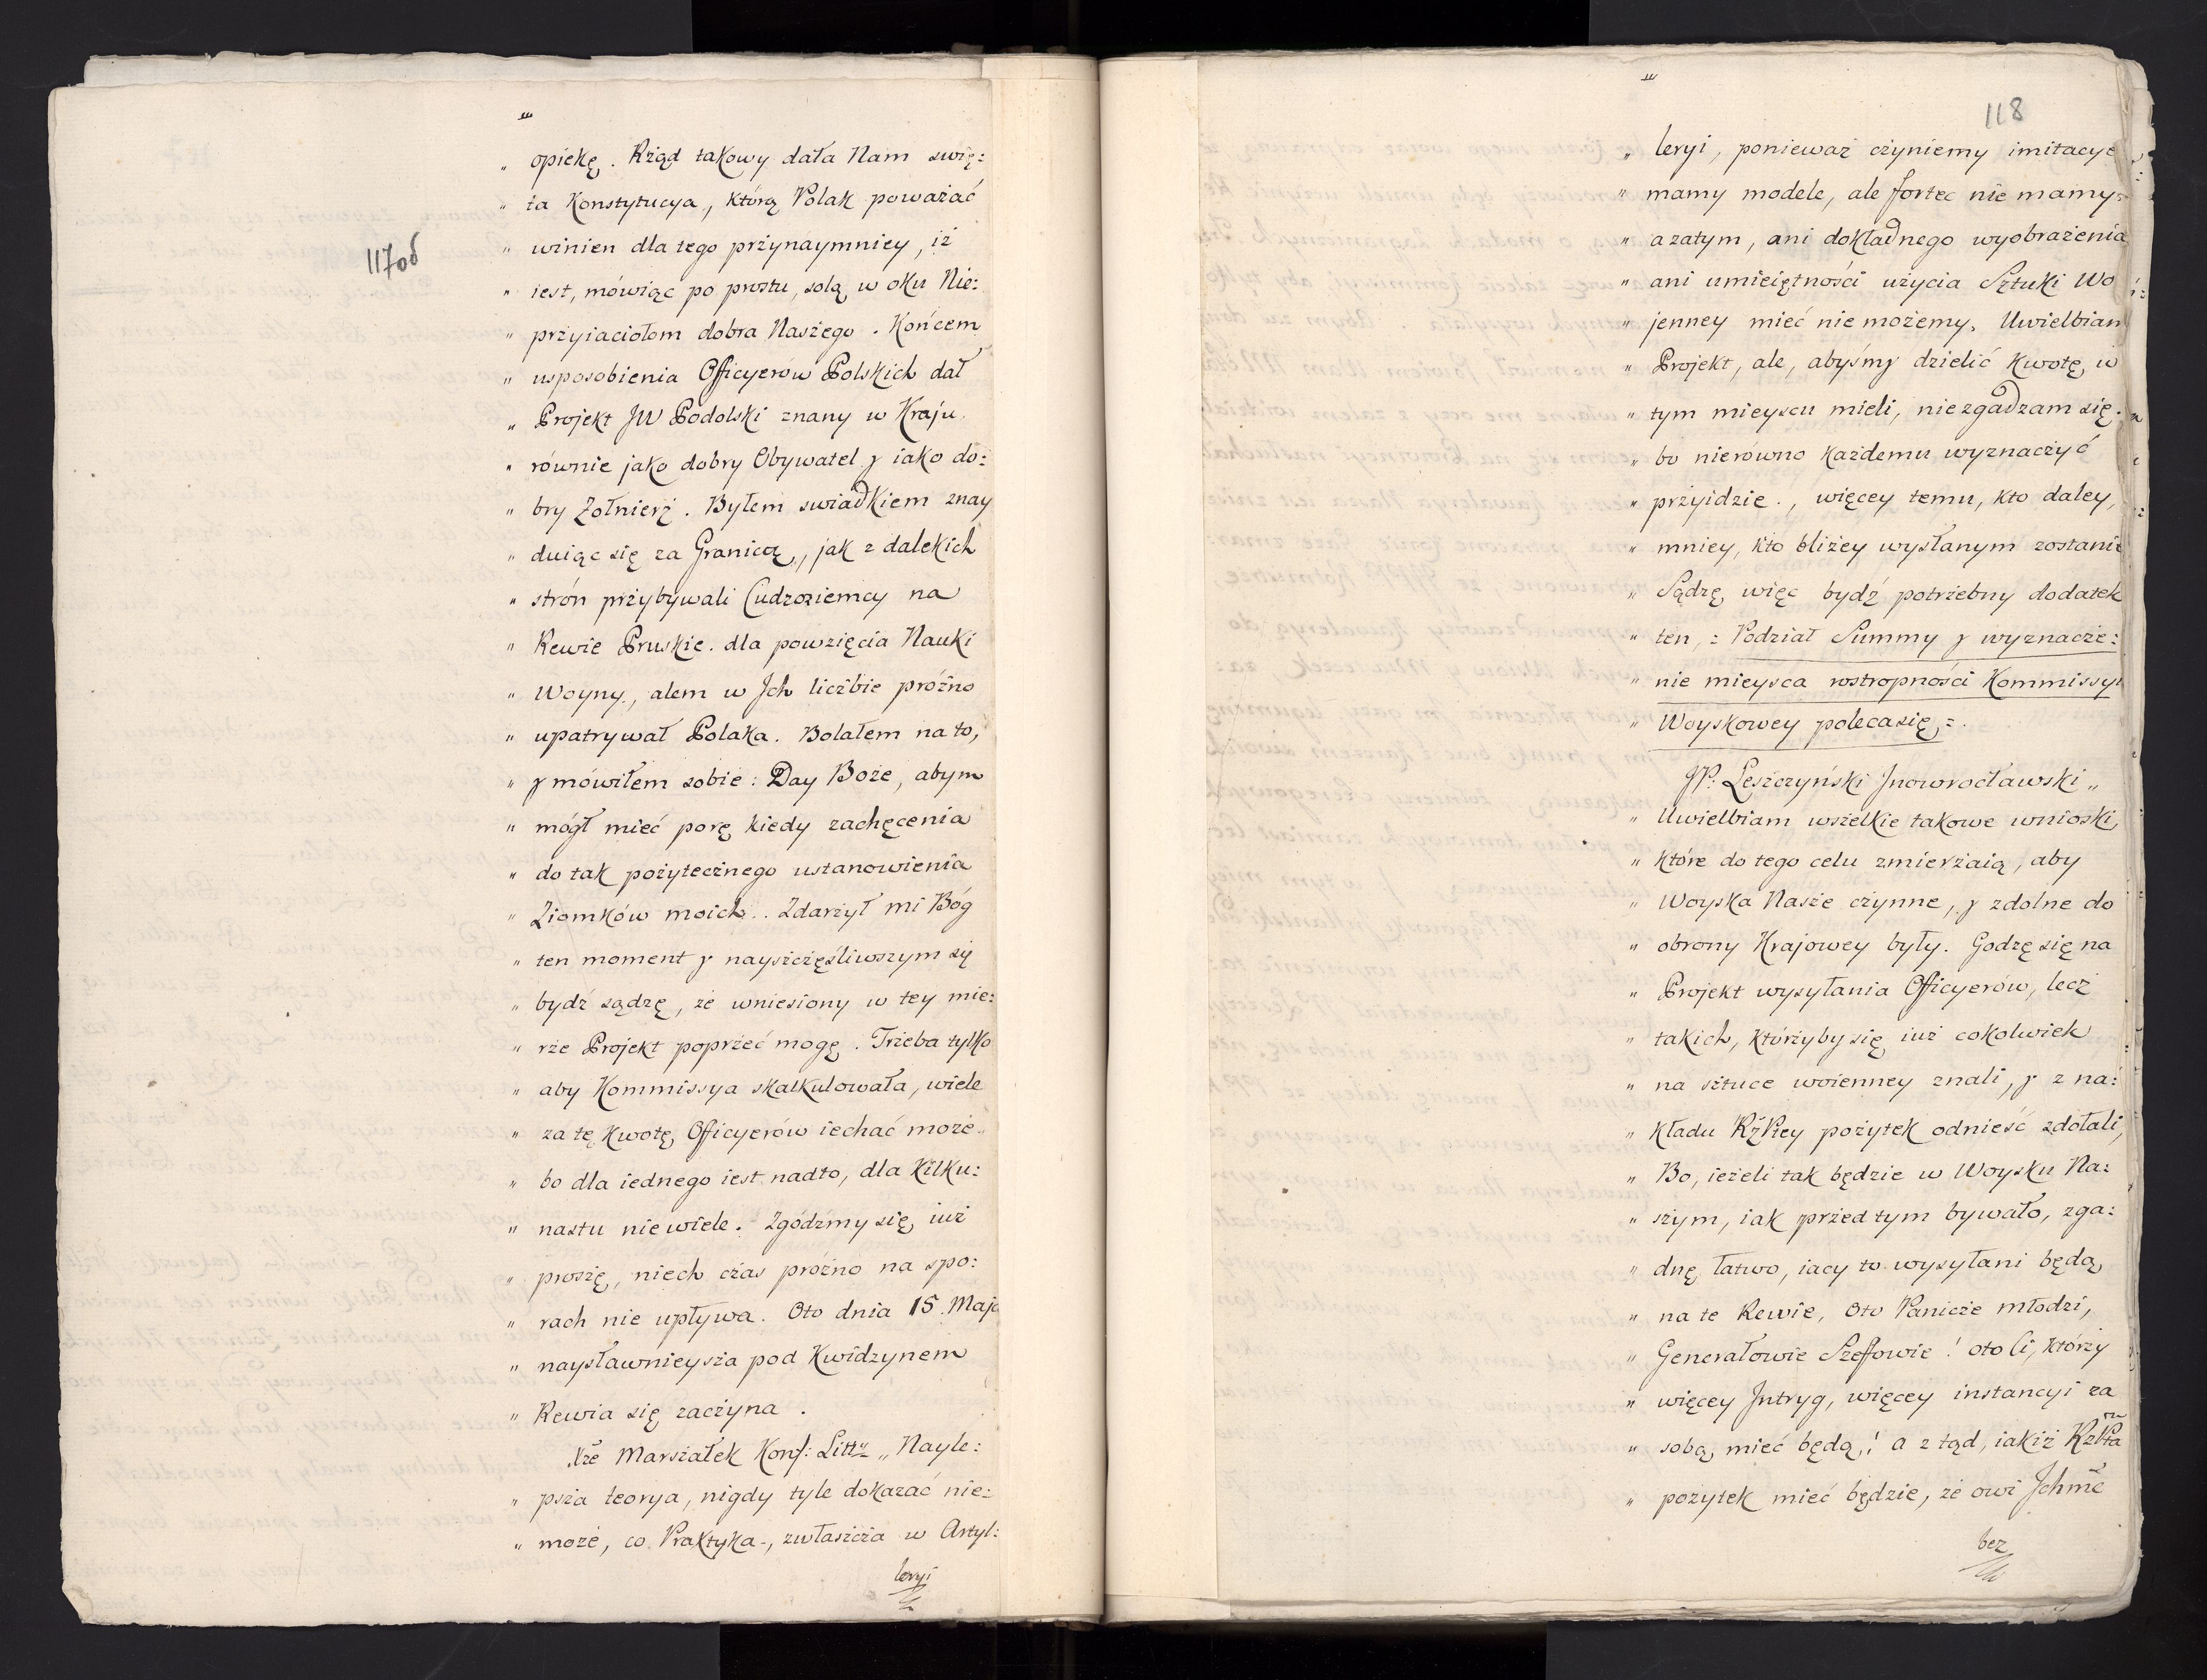 117об
„ opiekę. Rżąd takowy dała Nam swię:
„ ta Konstytucya, którą Polak poważać
„ winien dla tego przynaymniey, iż
„ iest, mówiąc po prostu, solą w oku Nie:
„ przyiaciołom dobra Naszego. Końcem
„ usposobienia Officyerów Polskich dał
„ Projekt JW Podolski znany w Kraju
„ równie jako dobry Obywatel y iako do:
„ bry Żołnierz. Byłem swiadkiem znay
„ duiąc się za Granicą, jak z dalekich
„ strón przybywali Cudzoziemcy na
„ Rewie Pruskie dla powzięcia Nauki
„ Woyny, alem w Jch liczbie próżno
„ upatrywał Polaka. Bolałem na to,
„ y mówiłem sobie: Day Boże, abym
„ mógł mieć porę kiedy zachęcenia
„ do tak pożytecznego ustanowienia
„ Ziomków moich. Zdarzył mi Bóg
„ ten moment y nayszczęśliwszym się
„ bydź sądzę, że wniesiony w tey mie:
„ rze Projekt poprzeć mogę. Trzeba tylko
„ aby Kommissya skalkulowała, wiele
„ za tę kwotę Officyerów iechać może
„ bo dla iednego iest nadto, dla kilku:
„ nastu niewiele. Zgódźmy się iuż
„ proszę, niech czas próżno na spo:
„ rach nie upływa. Oto dnia 15. Maja
„ naysławnieysza pod Kwidzynem
„ Rewia się zaczyna.
Xże Marszałek Konf: Litt: „Nayle:
„ psza teorya, nigdy tyle dokazać nie:
„ może, co Praktyka, zwłaszcza w Artyl:
leryi
118
„ leryi, ponieważ czyniemy imitacye
„ mamy modele, ale fortec nie mamy
„ a zatym, ani dokładnego wyobrażenia
„ ani umieiętności użycia Sztuki Wo
„ jenney mieć nie możemy. Uwielbiam
„ Projekt, ale, abyśmy dzielić kwotę w
„ tym mieyscu mieli, nie zgadzam się.
„ bo nierówno każdemu wyznaczyć
„ przyidzie, więcey temu, kto daley,
„ mniey, kto bliżey wysłanym zostanie
„ Sądzę więc bydź potrzebny dodatek
„ ten, = Podział Summy y wyznacze:
„ nie mieysca rostropności Kommissyi
„ Woyskowey poleca się =.
JP: Leszczyński Jnowrocławski „
„ Uwielbiam wszelkie takowe wnioski,
„ które do tego celu zmierzaią, aby
„ Woyska Nasze czynne, y zdolne do
„ obrony Krajowey były. Godzę się na
„ Projekt wysyłania Officyerów, lecz
„ takich, którzyby się iuż cokolwiek
„ na sztuce woienney znali, y z na:
„ kładu RzPtey pożytek odnieść zdołali,
„ Bo, ieżeli tak będzie w Woysku Na:
„ szym, iak przed tym bywało, zga:
„ dnę łatwo, iacy to wysyłani będą
„ na te Rewie, Oto Panicze młodzi,
„ Generałowie Szeffowie! oto Ci, którzy
„ więcey Jntryg, więcey instancyi za
„ sobą mieć będą! a z tąd, iakiż RzPta
„ pożytek mieć będzie, że owi Jchmć
bez